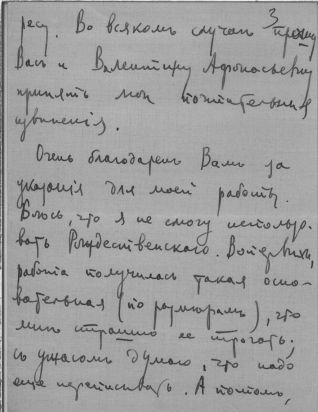 ресу. Во всякомъ случаѣ 3 прошу
Васъ и Валентину Афонасьевну
принять мои почтательныя
извиненія.
Очень благодаренъ Вамъ за
указанія для моей работы.
Боюсь, что я не смогу использо-
вать Рождественскаго. Во первыхъ,
работа получилась такая осно-
вательная (по размѣрамъ), что
мнѣ страшно ее трогать;
съ ужасомъ думаю, что надо
еще переписывать. А потомъ,